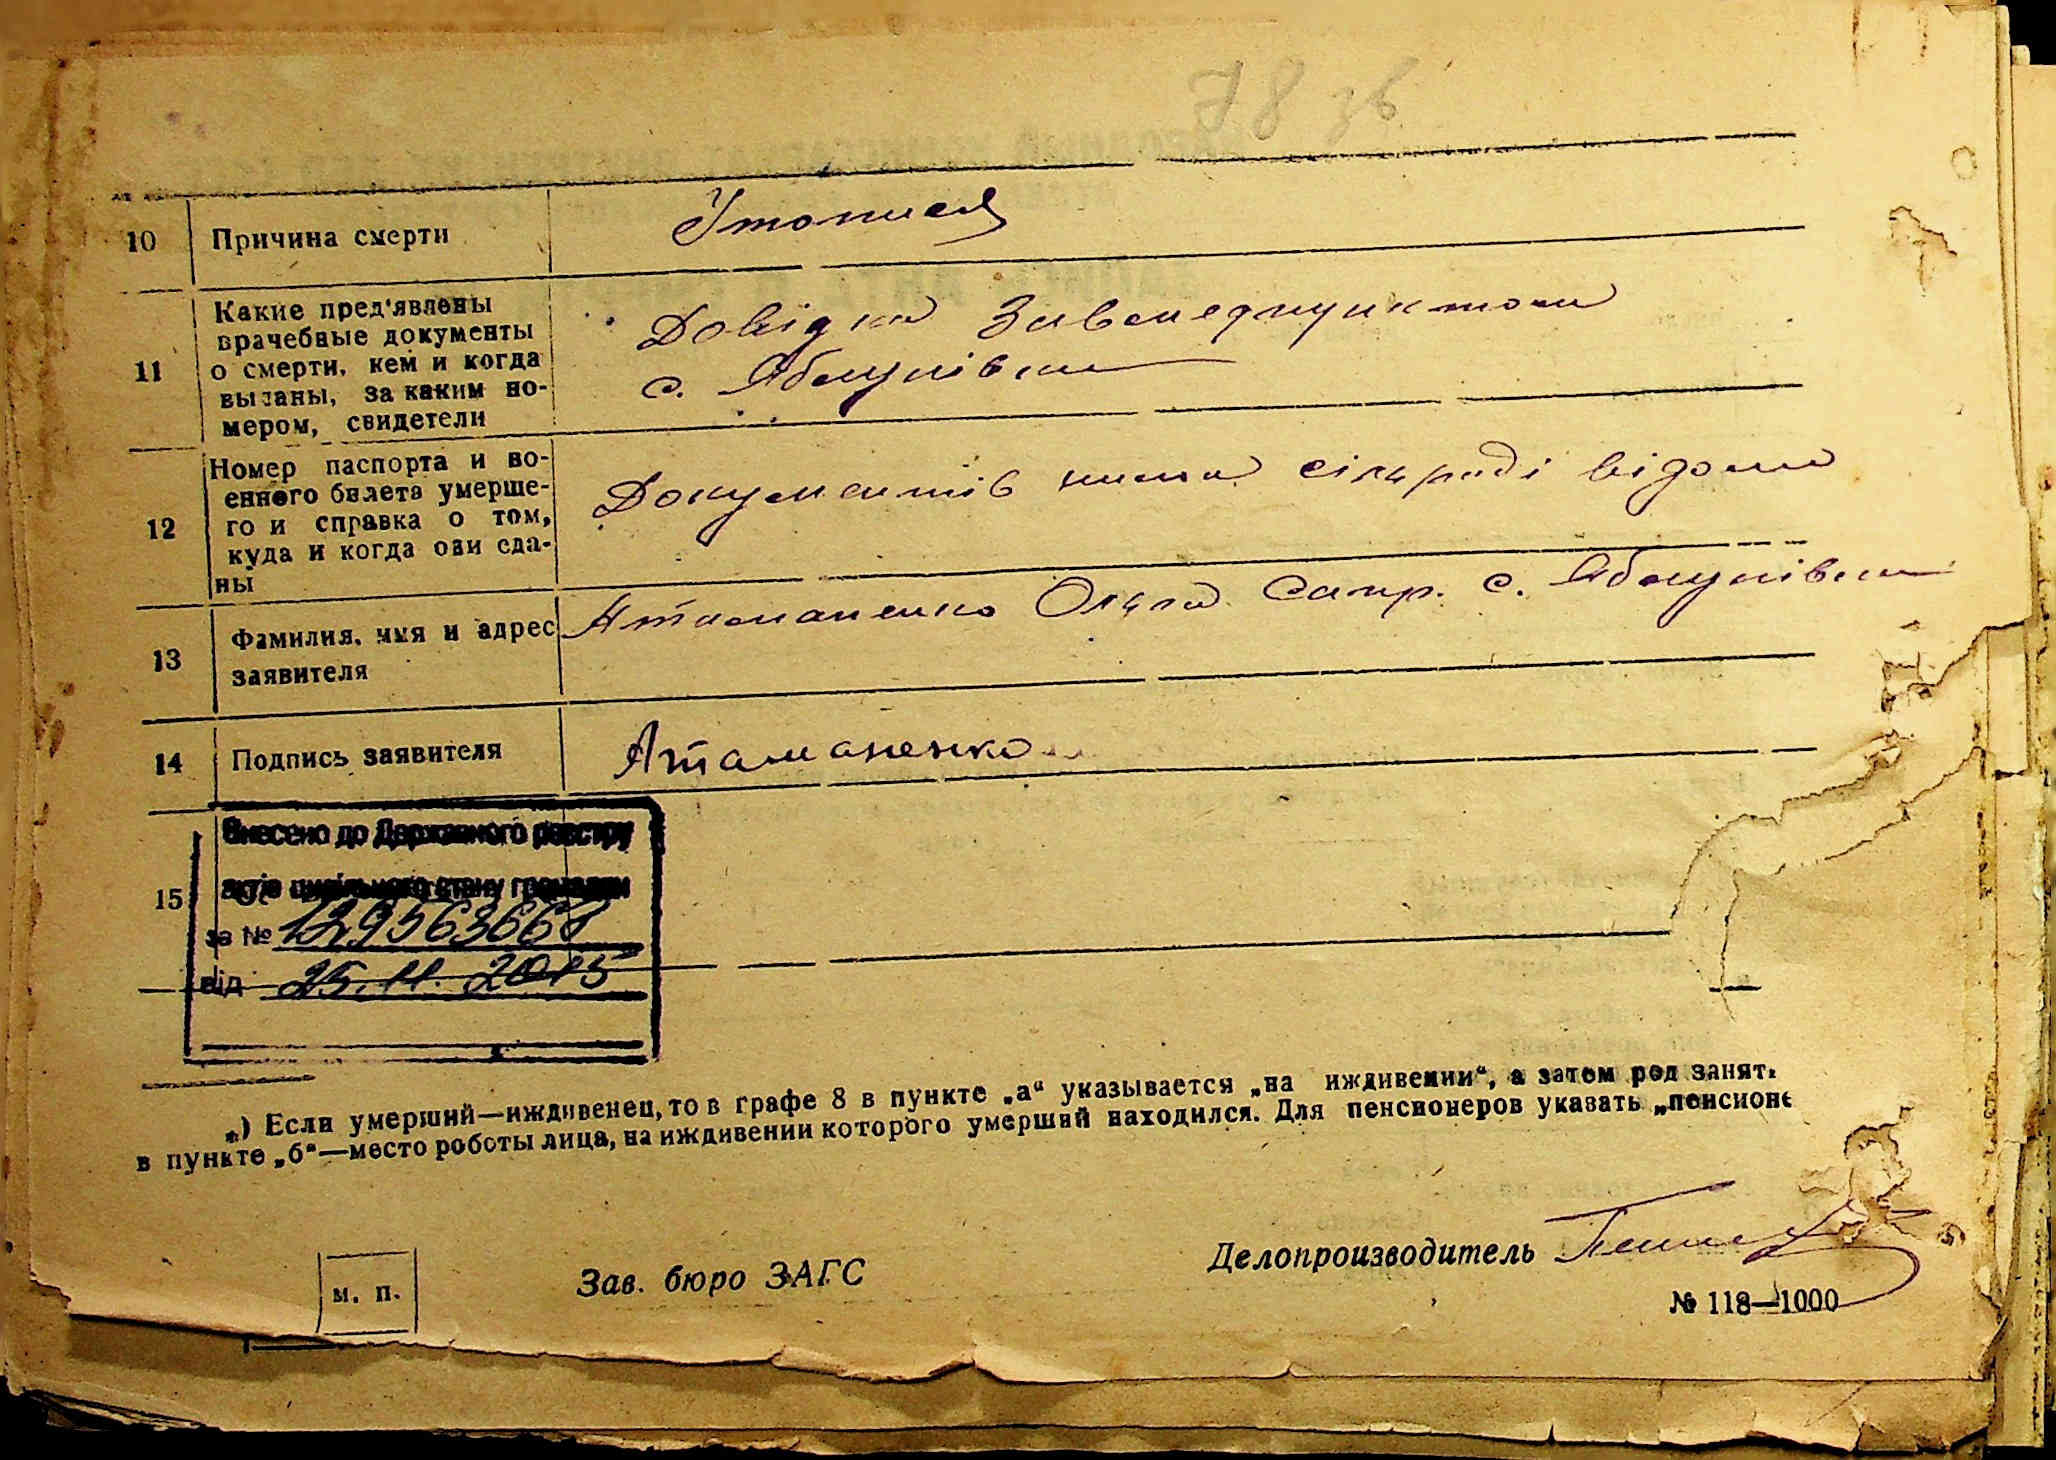 78 зв
10 Причина смерти Утопися
11 Какие пред'явлены
врачебные документы
о смерти, кем и когда
выданы, за каким но-
мером, свидетели
Довідка Завмедпунктом
с. Яблунівки
12 Номер паспорта и во-
енного билета умерше-
го и справка о том,
куда и когда они сда-
ны
Документів нема сільраді відомо
13 Фамилия, имя и адрес
заявителя
Атаманенко Ольга с. Яблунівки
14 Подпись заявителя Атаманенко
15
Внесено до Державного реєстру
актів цивільного стану громадян
за № 1329563668
від 25.11.2015
*) Если умерший—иждивенец, то в графе 8 в пункте „а“ указывается „на иждивении“, а затем род занят
в пункте „б“—место роботы лица, на иждивении которого умерший находился. Для пенсионеров указать „пенсионе
м. п.
Зав. бюро ЗАГС
Делопроизводитель
№ 118—1000